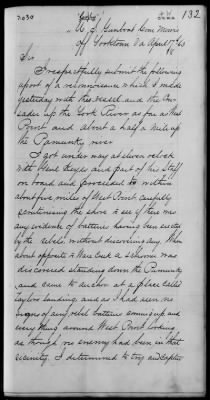 132
U.S. Gunboat Com. Morris
off Yorktown Va April 17th 63
Sir
I respectfully submit the following
report of a reconnoisance which I made
yesterday with this vessel and the
up the York River as far as West
Point and about a half a mile up
the Pamunky river
I got under way at eleven oclock
with Genl Keyes and part of his Staff
on board and proceeded to within
about five miles of West Point carefully
scrutinizing the shore to see if there was
any evidence of batteries having been erected
by the rebels, without discovering any. When
about opposite a schooner was
discovered standing down the Pamunky
and came to anchor at a place called
Taylors landing, and as I had seen no
signs of any rebel batteries coming up and
every thing around West Point looking
as though no enemy had been in that
vicinity. I determined to try and capture